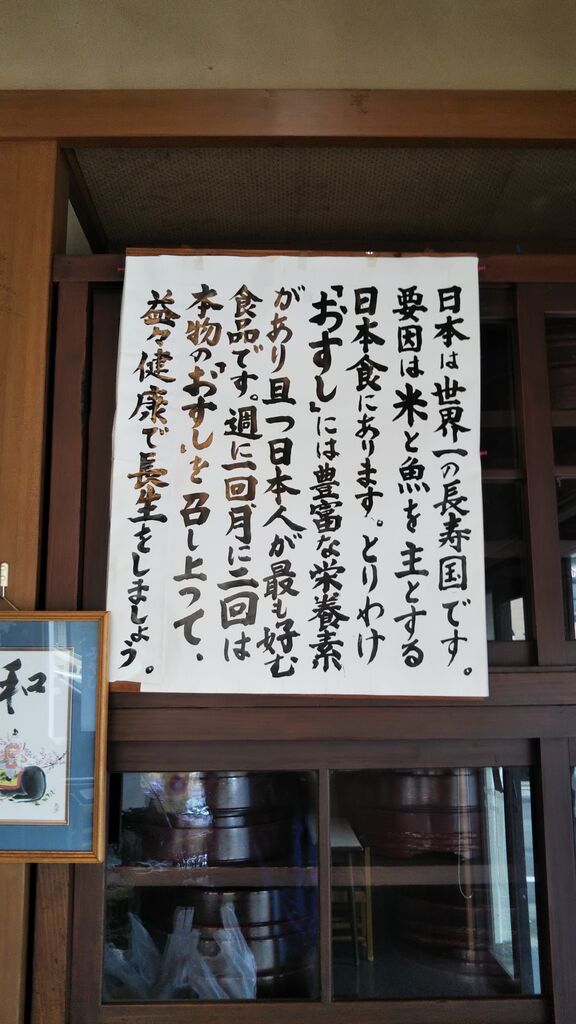 日本は世界一の長寿国です。
要因は米と魚を主とする
日本食にあります。とりわけ
「おすし」には豊富な栄養素
があり且つ日本人が最も好む
食品です。週に一回月に二回は
本物の「おすし」を召し上って、
益々健康で長生をしましょう。
和